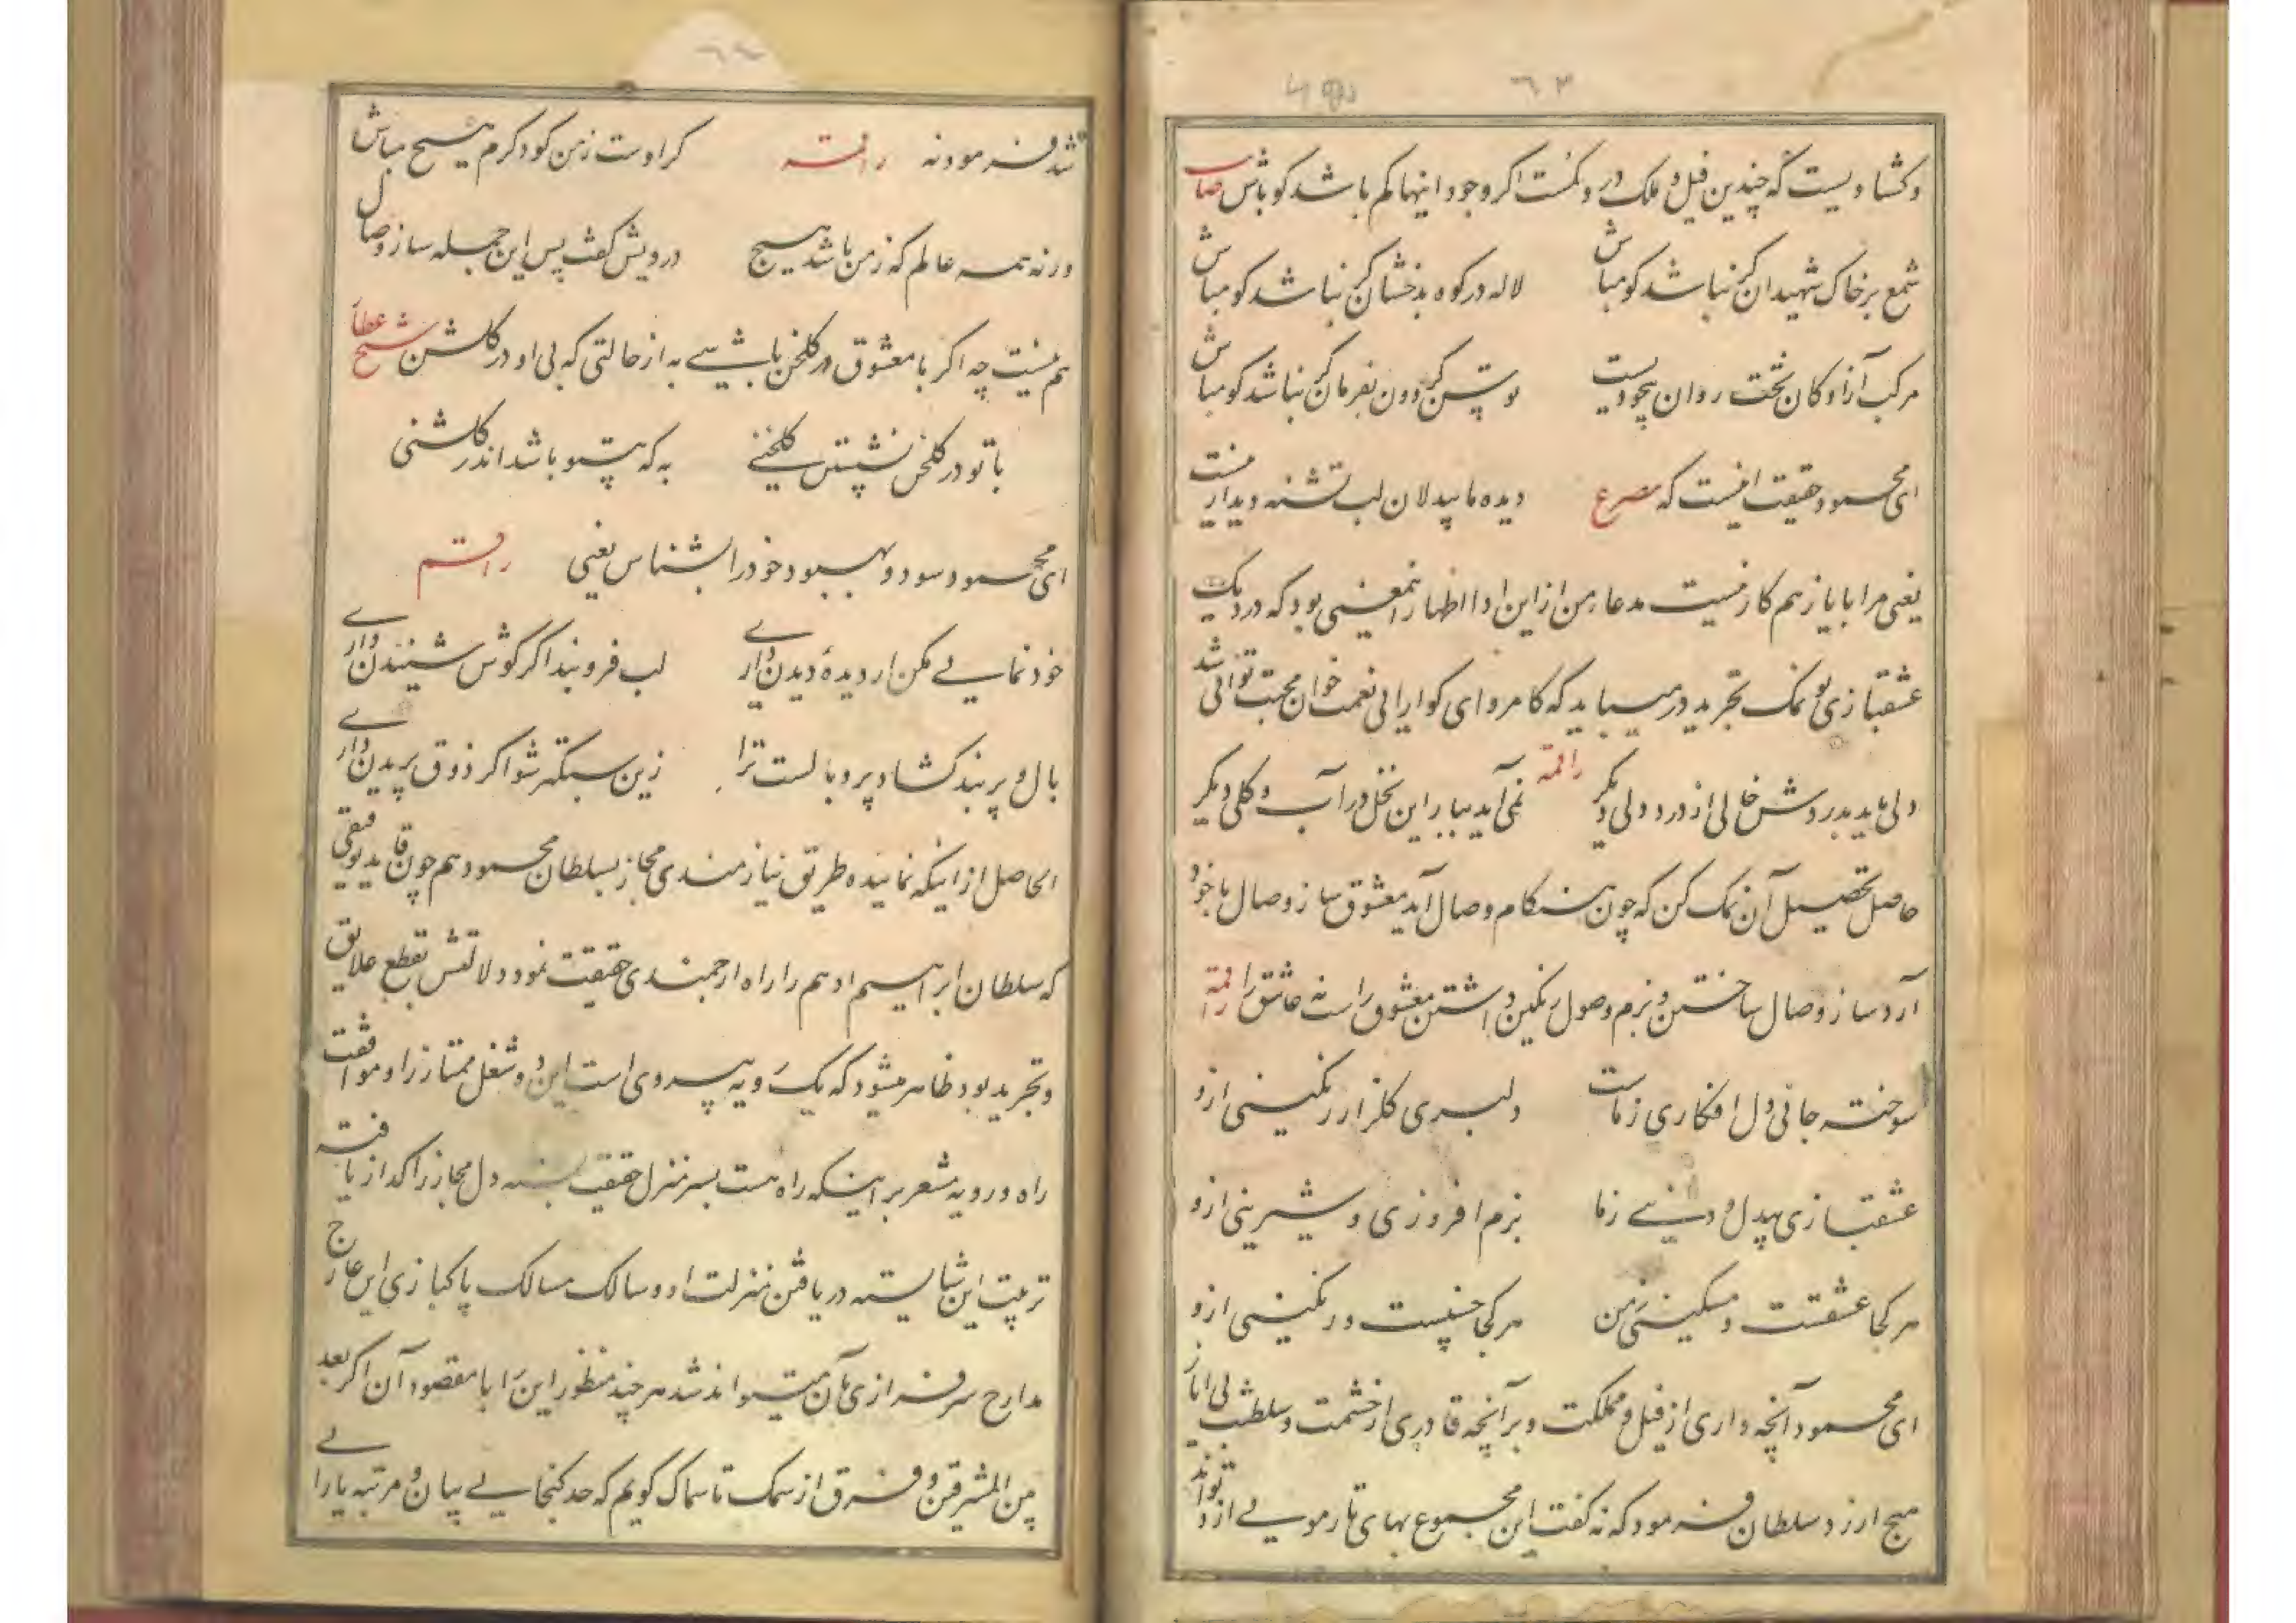 ۶۳
وکشاد ویست که چندین فیل و ملک در و کمست اکر وجود اینها کم باشد کو باش
شمع بر خاک شهیدان کر نباشد کو مباش لاله در کوه بدخشان کر نباشد کو مباش
مرکب آزادکان تخت روان بیخودیست کردون بفرمان کر نباشد کو مباش
ای محمود حقیقت اینست که مصرع دیده ما بیدلان لب تشنه دیدار
یعنی مرا با یاز هم کار نیست مدعا من از این ادا اظهار بود که در دیک
عشقبازی نمک تجرید در میباید که کامروای کوارایی نعمت خوان محبت تواند شد
دلی باید بدردش خالی از درد دلی دیکر راقمه نمی آید ببار این نخل در آب و کلی دیکر
حاصل تحصیل آن نمک کن که چون هنکام وصال آید معشوق ساز وصال با خود
آرد ساز وصال ساختن و بزم وصول رنکین داشتن معشوق راست نه عاشق را راقمه
سوخته جانی و دل افکاری زماست دلبری کلزار رنکینی ازو
عشقبازی بیدل و زما بزم افروزی و شیرینی ازو
هر کجا عشقت و مسکینی زمن هر کجا حسنیست و رنکینی ازو
ای محمود آنچه داری از فیل و مملکت و بر آنچه قادری از حشمت و سلطنت بی ایاز
هیچ ارزد سلطان فرمود که نه کفت این مجموع بهای تار مویی از او تواند
۶۴
شد فرمود نه راقمه کر اوست زمن کو دکرم هیچ مباش
ورنه همه عالم که زمن باشد هیچ درویش کفت پس این جمله ساز وصال
هم نیست چه اکر با معشوق در کلخن باشی به از حالتی که بی او در کلشن شیخ عطار
با تو در کلخن نشستن به که بیتو باشد اندر کلشنی
ای محمود سود و بهبود خود را بشناس یعنی راقم
خود نمایی مکن ار دیده دیدن داری لب فرو بند اکر کوش شنیدن داری
بال و پر بند کشاد پر و بالست ترا زین سبکتر شو اکر ذوق پریدن داری
الحاصل از اینکه نماینده طریق نیازمندی مجاز بسلطان محمود هم چون قاید توفیقی
که سلطان ابراهیم ادهم را راه ارجمندی حقیقت نمود دلالتش بقطع علایق
و تجرید بود ظاهر میشود که یک رویه پیروی است این دو شغل ممتاز را و موافقت
راه و رویه مشعر بر اینکه راه هست بسر منزل حقیقت دل مجاز را کداز یافته
تربیت این شایسته دریافتن منزلت او و سالک مسالک پاکبازی این عارج
مدارج سرفرازی آن میتواند شد هر چند منظور این را با مقصود آن اکر بعد
بین المشرقین و فرق از سمک تا سماک کویم که حد کنجایی بیان و مرتبه یارا